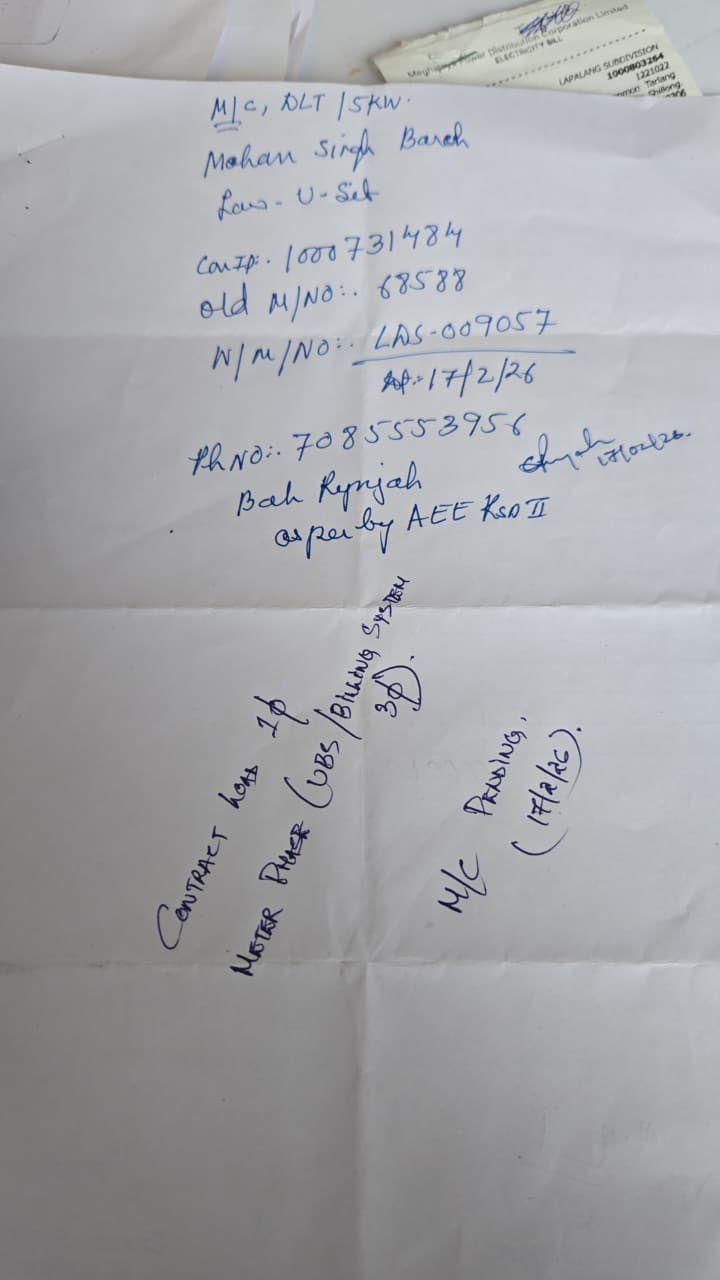 Meghalaya Power Distribution Corporation Limited
ELECTRICITY BILL
LAPALANG SUBDIVISION
1000803264
1221022
Tarlang
Shillong
M/C, DLT /5KW.
Mohan Singh Bareh
Law-U-Sib
Con ID:. 1000731484
old M/NO:. 68588
N/M/NO:. LDS-009057
17/2/26
Ph NO:. 7085553956
17/02/26.
Bah Rynjah
as per by AEE RSD II
CONTRACT LOAD 1φ
METER PHASE (UBS/BILLING SYSTEM
3φ).
M/C PENDING,
(17/2/26).